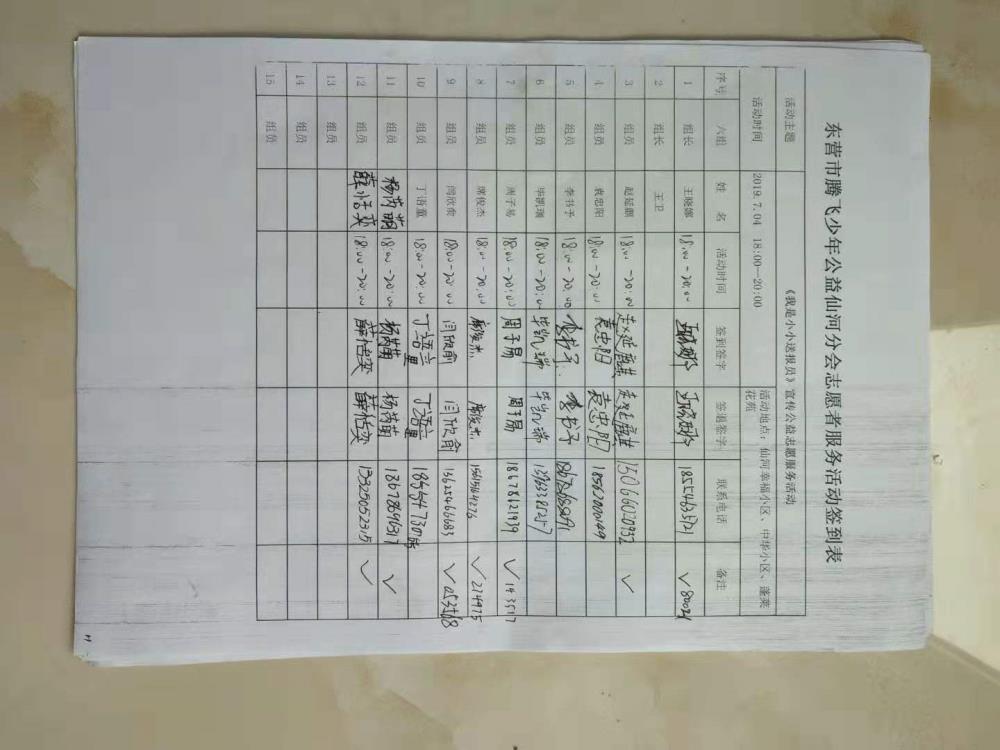 东营市腾飞少年公益仙河分会志愿者服务活动签到表
活动主题 《我是小小送报员》宣传公益志愿服务活动
活动时间 2019.7.04 18:00—20:00 活动地点：仙河幸福小区、中华小区、蓬莱花苑
序号 六组 姓 名 活动时间 签到签字 签退签字 联系电话 备注
1 组长 王晓娜 18:00-20:00 18554635121 √80021
2 组长 王卫
3 组员 赵延麒 18:00-20:00 赵延麒 赵延麒 15066020932 √
4 组员 袁忠阳 18:00-20:00 袁忠阳 袁忠阳
5 组员 李书予 18:00-20:00 李书予 李书予
6 组员 毕凯瑞 18:00-20:00 毕凯瑞 毕凯瑞
7 组员 周子易 18:00-20:00 周子易 周子易 18678621939 √
8 组员 席俊杰 18:00-20:00 席俊杰 席俊杰 √274975
9 组员 闫欣俞 18:00-20:00 闫欣俞 闫欣俞 15625466683 √
10 组员 丁语童 18:00-20:00 丁语童 丁语童
11 组员 杨芮萌 18:00-20:00 杨芮萌 杨芮萌 √
12 组员 薛恬奕 18:00-20:00 薛恬奕 薛恬奕 13325052315 √
13 组员
14 组员
15 组员